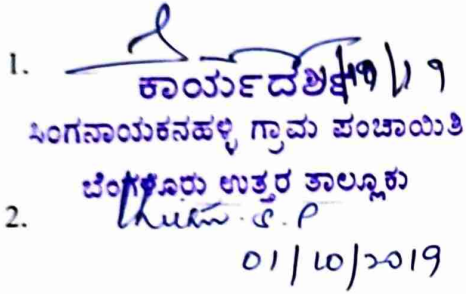 1.
ಕಾರ್ಯದರ್ಶಿ
ಸಿಂಗನಾಯಕನಹಳ್ಳಿ ಗ್ರಾಮ ಪಂಚಾಯಿತಿ
ಬೆಂಗಳೂರು ಉತ್ತರ ತಾಲ್ಲೂಕು
2.
01/10/2019